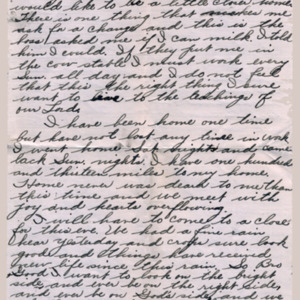 would like to be a little close home
There is one thing that
ask for a change and this is the
boss asked me if I can milk. I told
him I could. If they put me in
the cow stable I must work every
Sun. all day and I do not feel
that this the right thing I sure
want to live to the teachings of
our Lord.
I have been home one time
but have not lost any time in work
I went home Sat. nights and came
back Sun. nights. I have one hundred
and thirteen miles to my home.
Home never was dearth to me than
this time and we meet with
joy and hearts overflowing.
I will have to come to a close
for this eve. We had a fine rain
here Yesteday and crops sure look
good and things have received
new life since this rain. So it is
Good. I want to be on the right
side, and ever be on the right side,
and ever be on Gods side and we